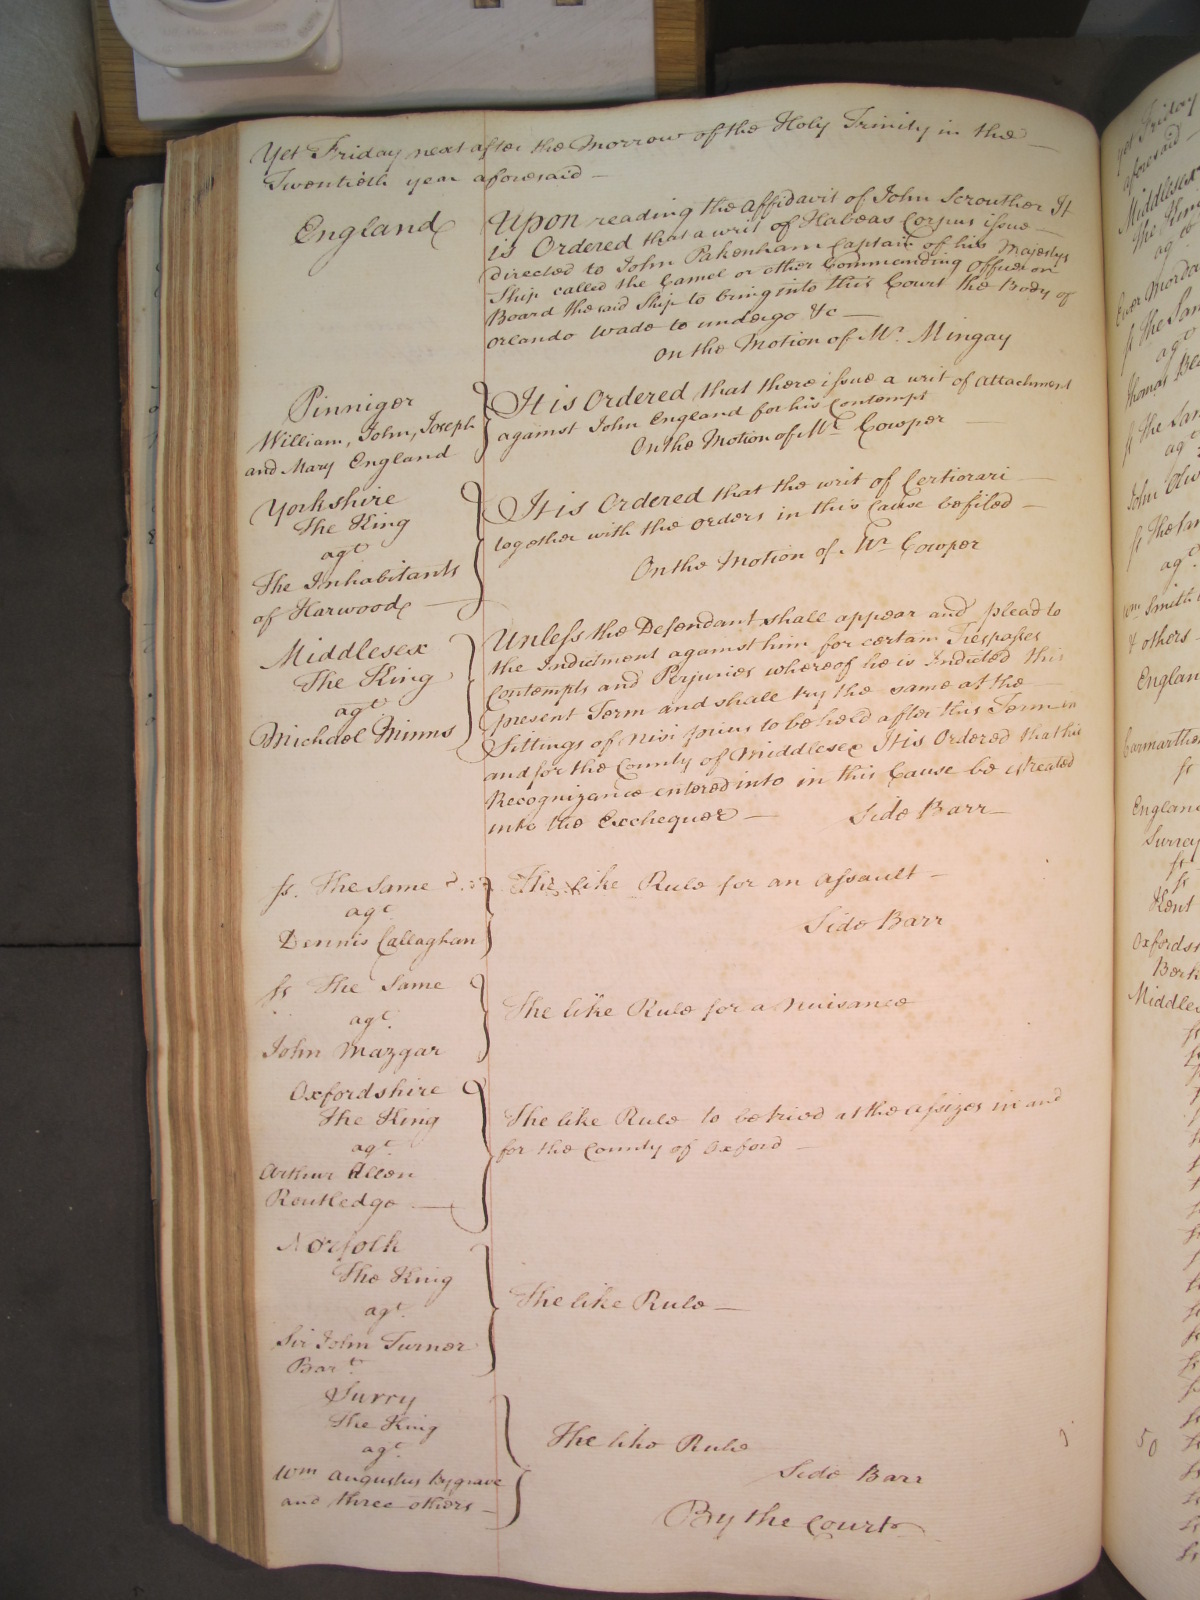 Yet Friday next after the Morrow of the Holy Trinity in the
Twentieth year aforesaid
England
Upon reading the affidavit of John Scrouther It
is Ordered that a writ of Habeas Corpus issue
directed to John Pakenham Captain of his Majestys
Ship called the Camel or other Commending Officer on
Board the said Ship to bring into this Court the Body of
Orlando Wade to undergo &c
On the Motion of Mr. Mingay
Pinniger
William, John, Joseph
and Mary England
It is Ordered that there issue a writ of attachment
against John England for his Contempt
On the Motion of Mr. Cowper
Yorkshire
The King
agt
The Inhabitants
of Harwood
It is Ordered that the writ of Certiorari
together with the orders in this Cause be filed
On the Motion of Mr Cowper
Middlesex
The King
agt
Michael Minns
Unless the Defendant shall appear and plead to
the Indictment against him for certain Trespasses
Contempts and Perjuries whereof he is Indicted this
present Term and shall try the same at the
Sittings of Nisi prius to be held after this Term in
and for the County of Middlesex It is Ordered that his
Recognizance entered into in this Cause be estreated
into the Exchequer
Side Barr
ss. The Same
agt
Dennis Callaghan
The like Rule for an assault
Side Barr
ss The Same
agt.
John Mazgar
The like Rule for a Nuisance
Oxfordshire
The King
agt.
Arthur Allen
Routledge
The like Rule to be tried at the assizes in and
for the County of Oxford
Norfolk
The King
agt.
Sir John Turner
Bart.
The like Rule
Surry
The King
agt
Wm Augustus Bygrave
and three others
The like Rule
Side Barr
By the Court